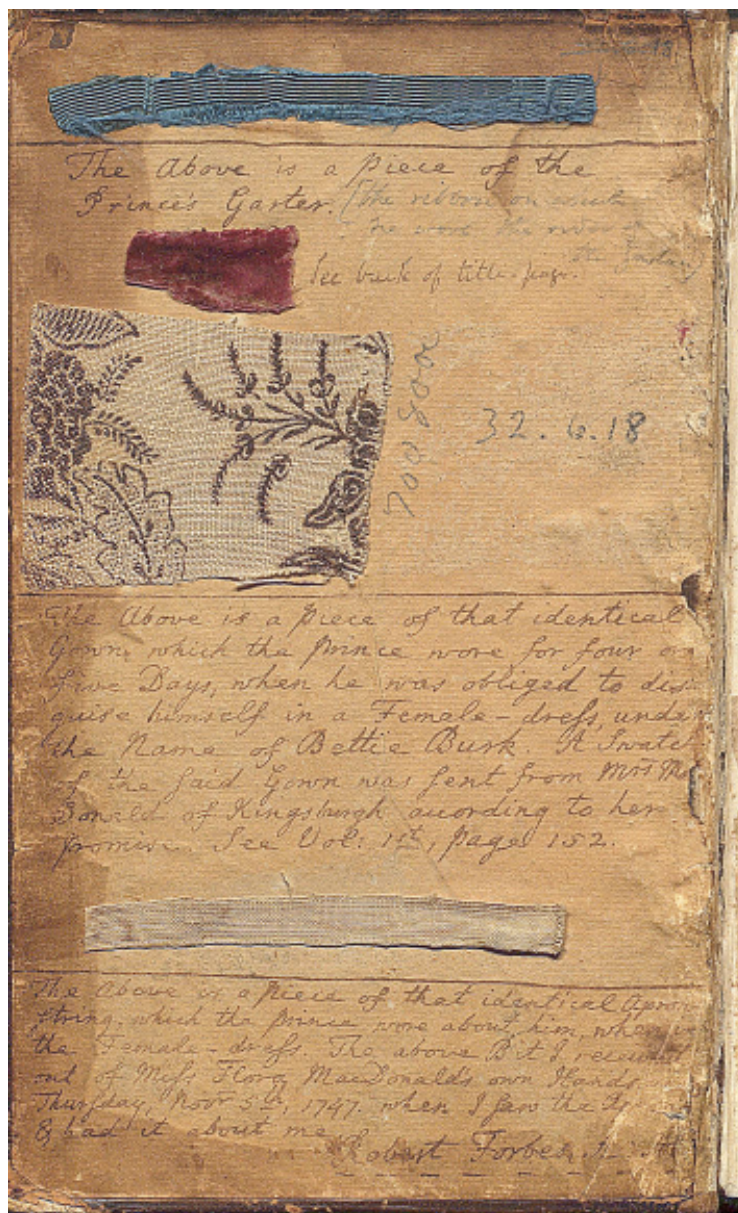 The Above is a piece of the
Prince's Garter. (the ribbon on which
he wore the
the Garter)
See back of title-page.
32.6.18
The Above is a piece of that identical
Gown, which the Prince wore for four or
five Days, when he was obliged to dis-
guise himself in a Female-dress, under
the Name of Bettie Burk. A Swatch
of the said Gown was sent from Mrs Mac
Donald of Kingsburgh according to her
promise. See Vol: 1st, page 152.
The Above is a piece of that identical Apron
string, which the Prince wore about him, when in
the Female-dress. The above Bit I received
out of Miss Flora MacDonald's own Hands, on
Thursday, Novr 5th, 1747. when I saw the Apron
& had it about me.
Robert Forbes,